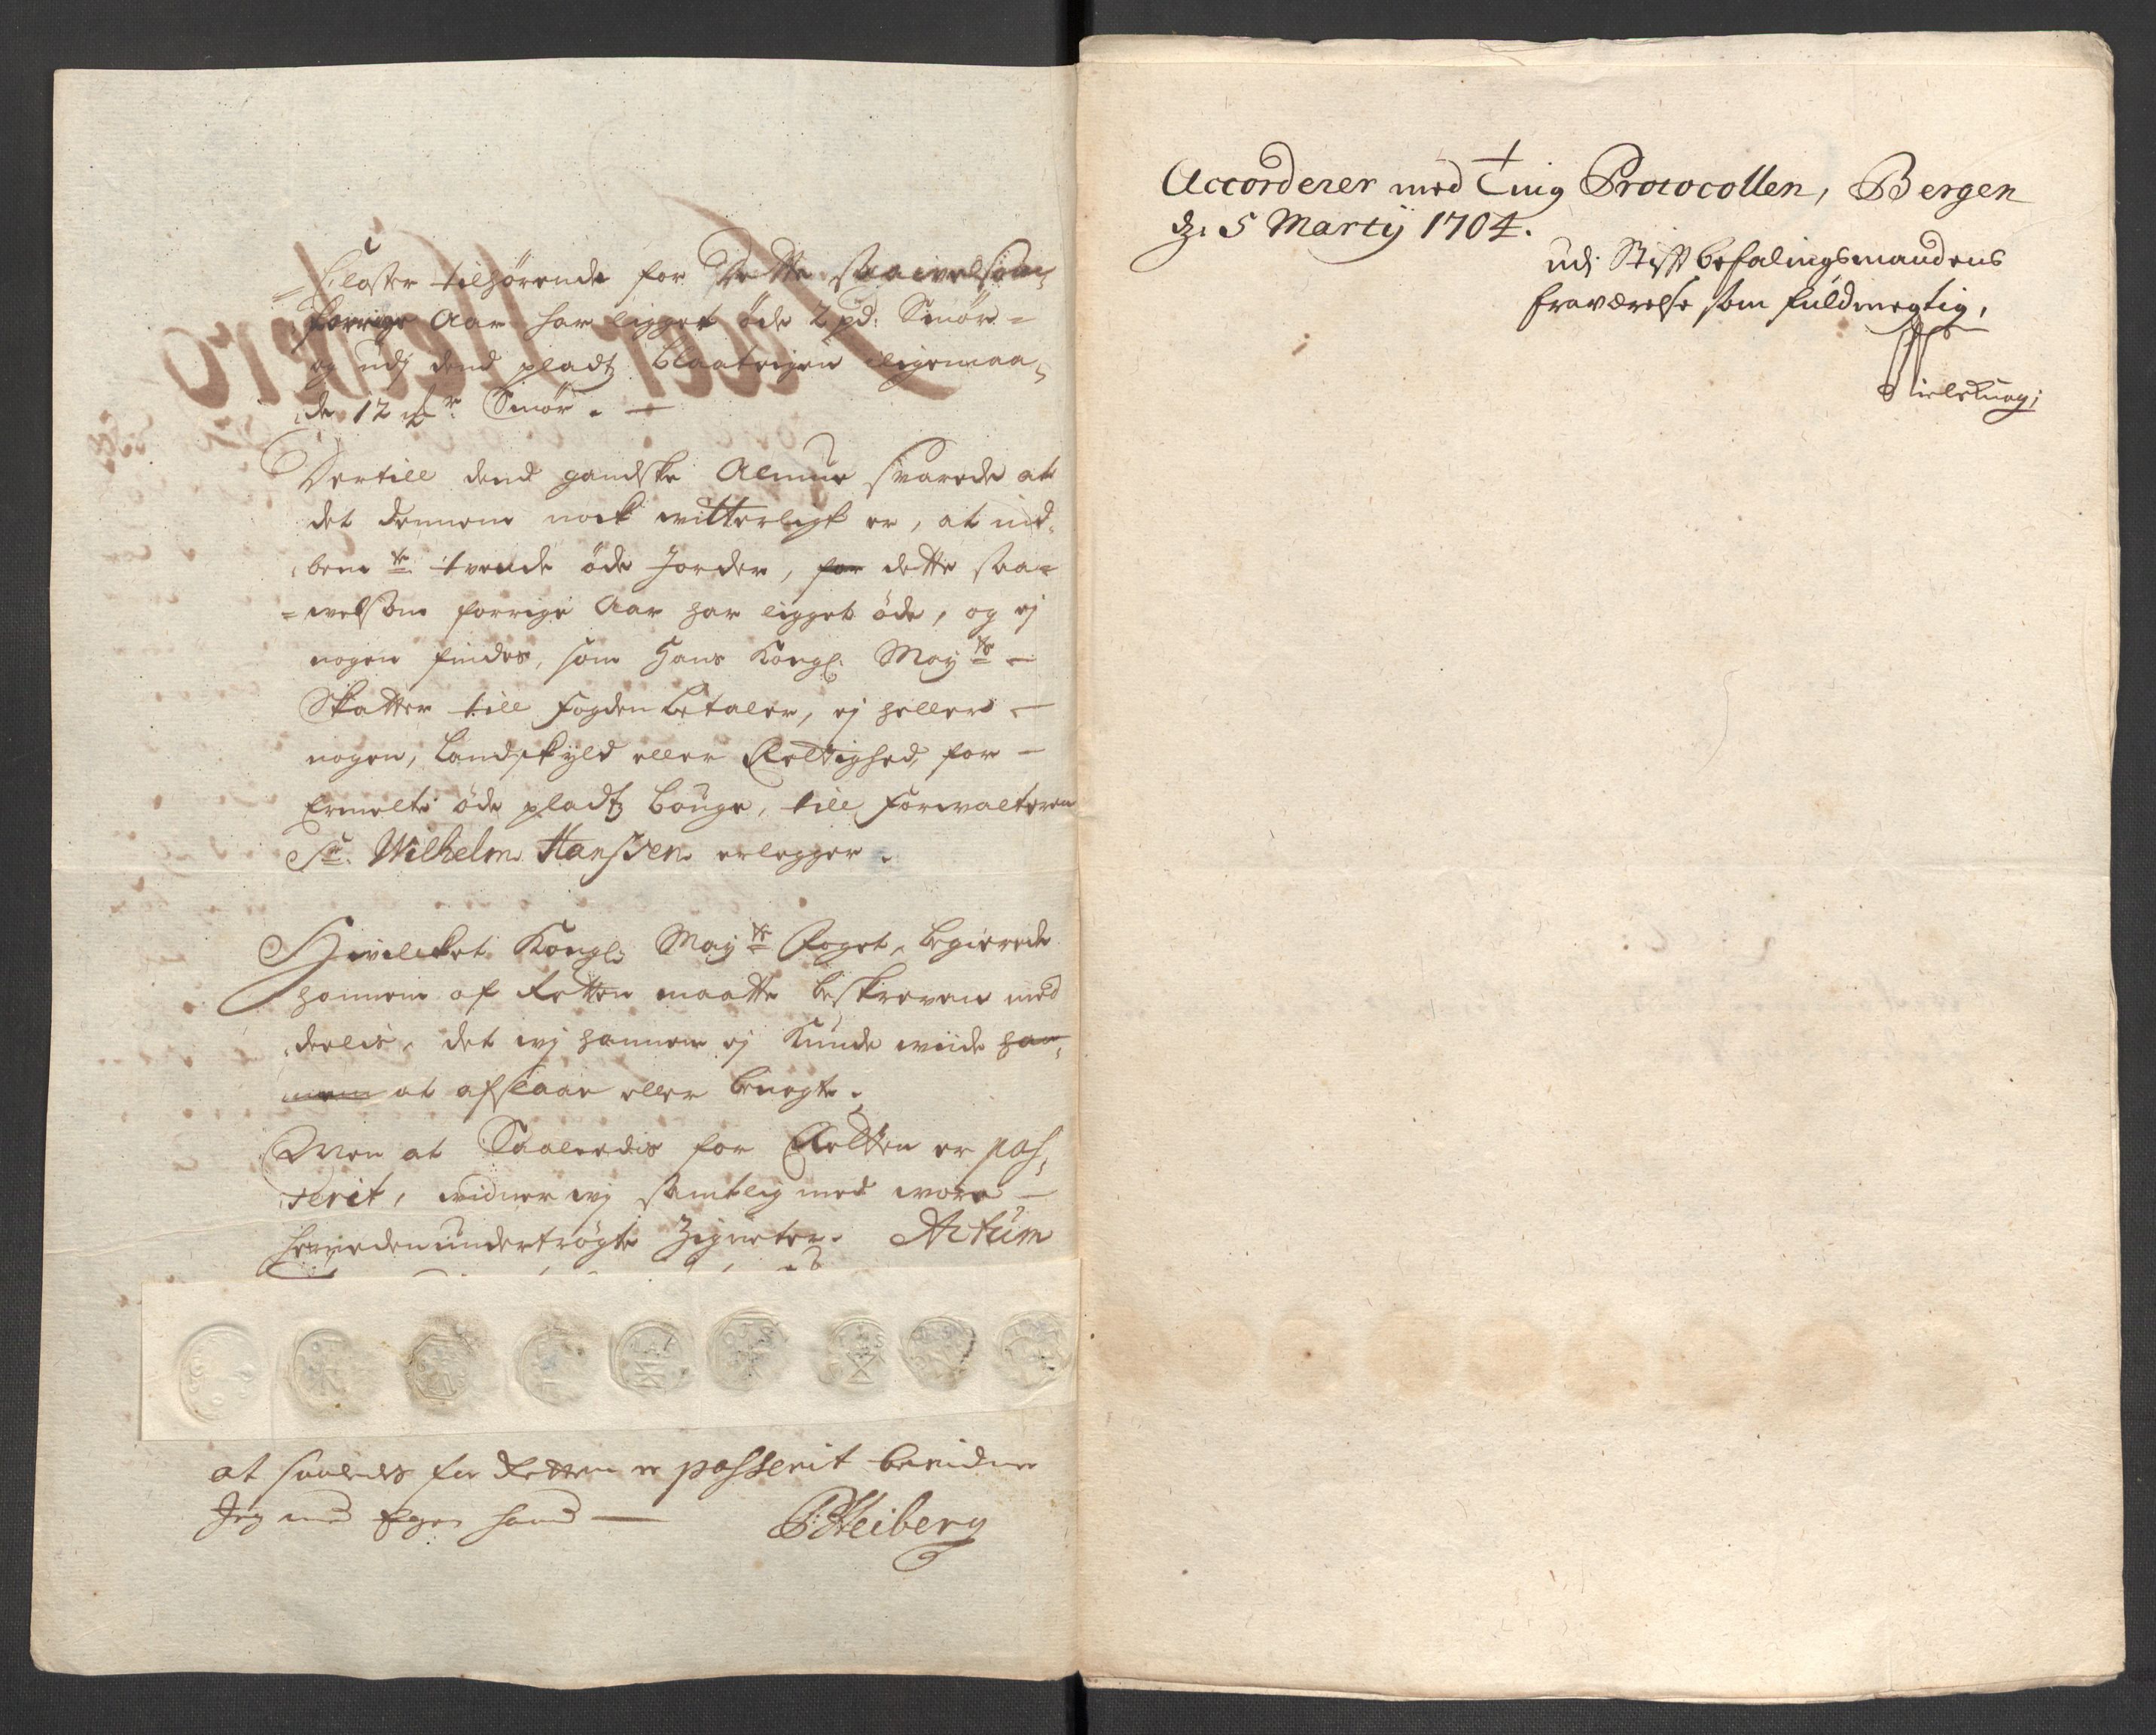 Closter tilhørende for dette saavelsom
forrige Aar har ligget øde 2 pd: Smør
og udj dend pladtz Blaateigen liigemaa-
de 12 mkr Smør.
Dertill dend gandske Almue svarede at
det dennem nock witterligt er, at ind-
bem.te tvende øde Jorder, for dette saa-
welsom forrige Aar har ligget øde, og ej
nogen findes, som Hans Kongl: May.ts
Skatter till Fogden betaler, ej heller
nogen, Landskyld eller Rettighed, for
Ermelte øde pladtz Bouge, till Forwalteren
Sr. Wilhelm Hanssen erlegger.
Hwilcket Kongl: May.ts Foget, begierede
hannem af Retten maatte beskreven med
deelis, det wj hannem ej kunde wiide han-
nem at afslaae eller benegte.
Men at Saaledis for Retten er pas-
serit, widner wj samtlig med wore
herneden undertrøgte Zigneter. Actum
at saaledes for Retten er passerit bevidner
Jeg med Egen haand
P Heiberg
Accorderer med Ting Protocollen, Bergen
d: 5 Martij 1704.
udj Stiftbefalingsmandens
fraværelse som fuldmegtig,
Niels Knag;